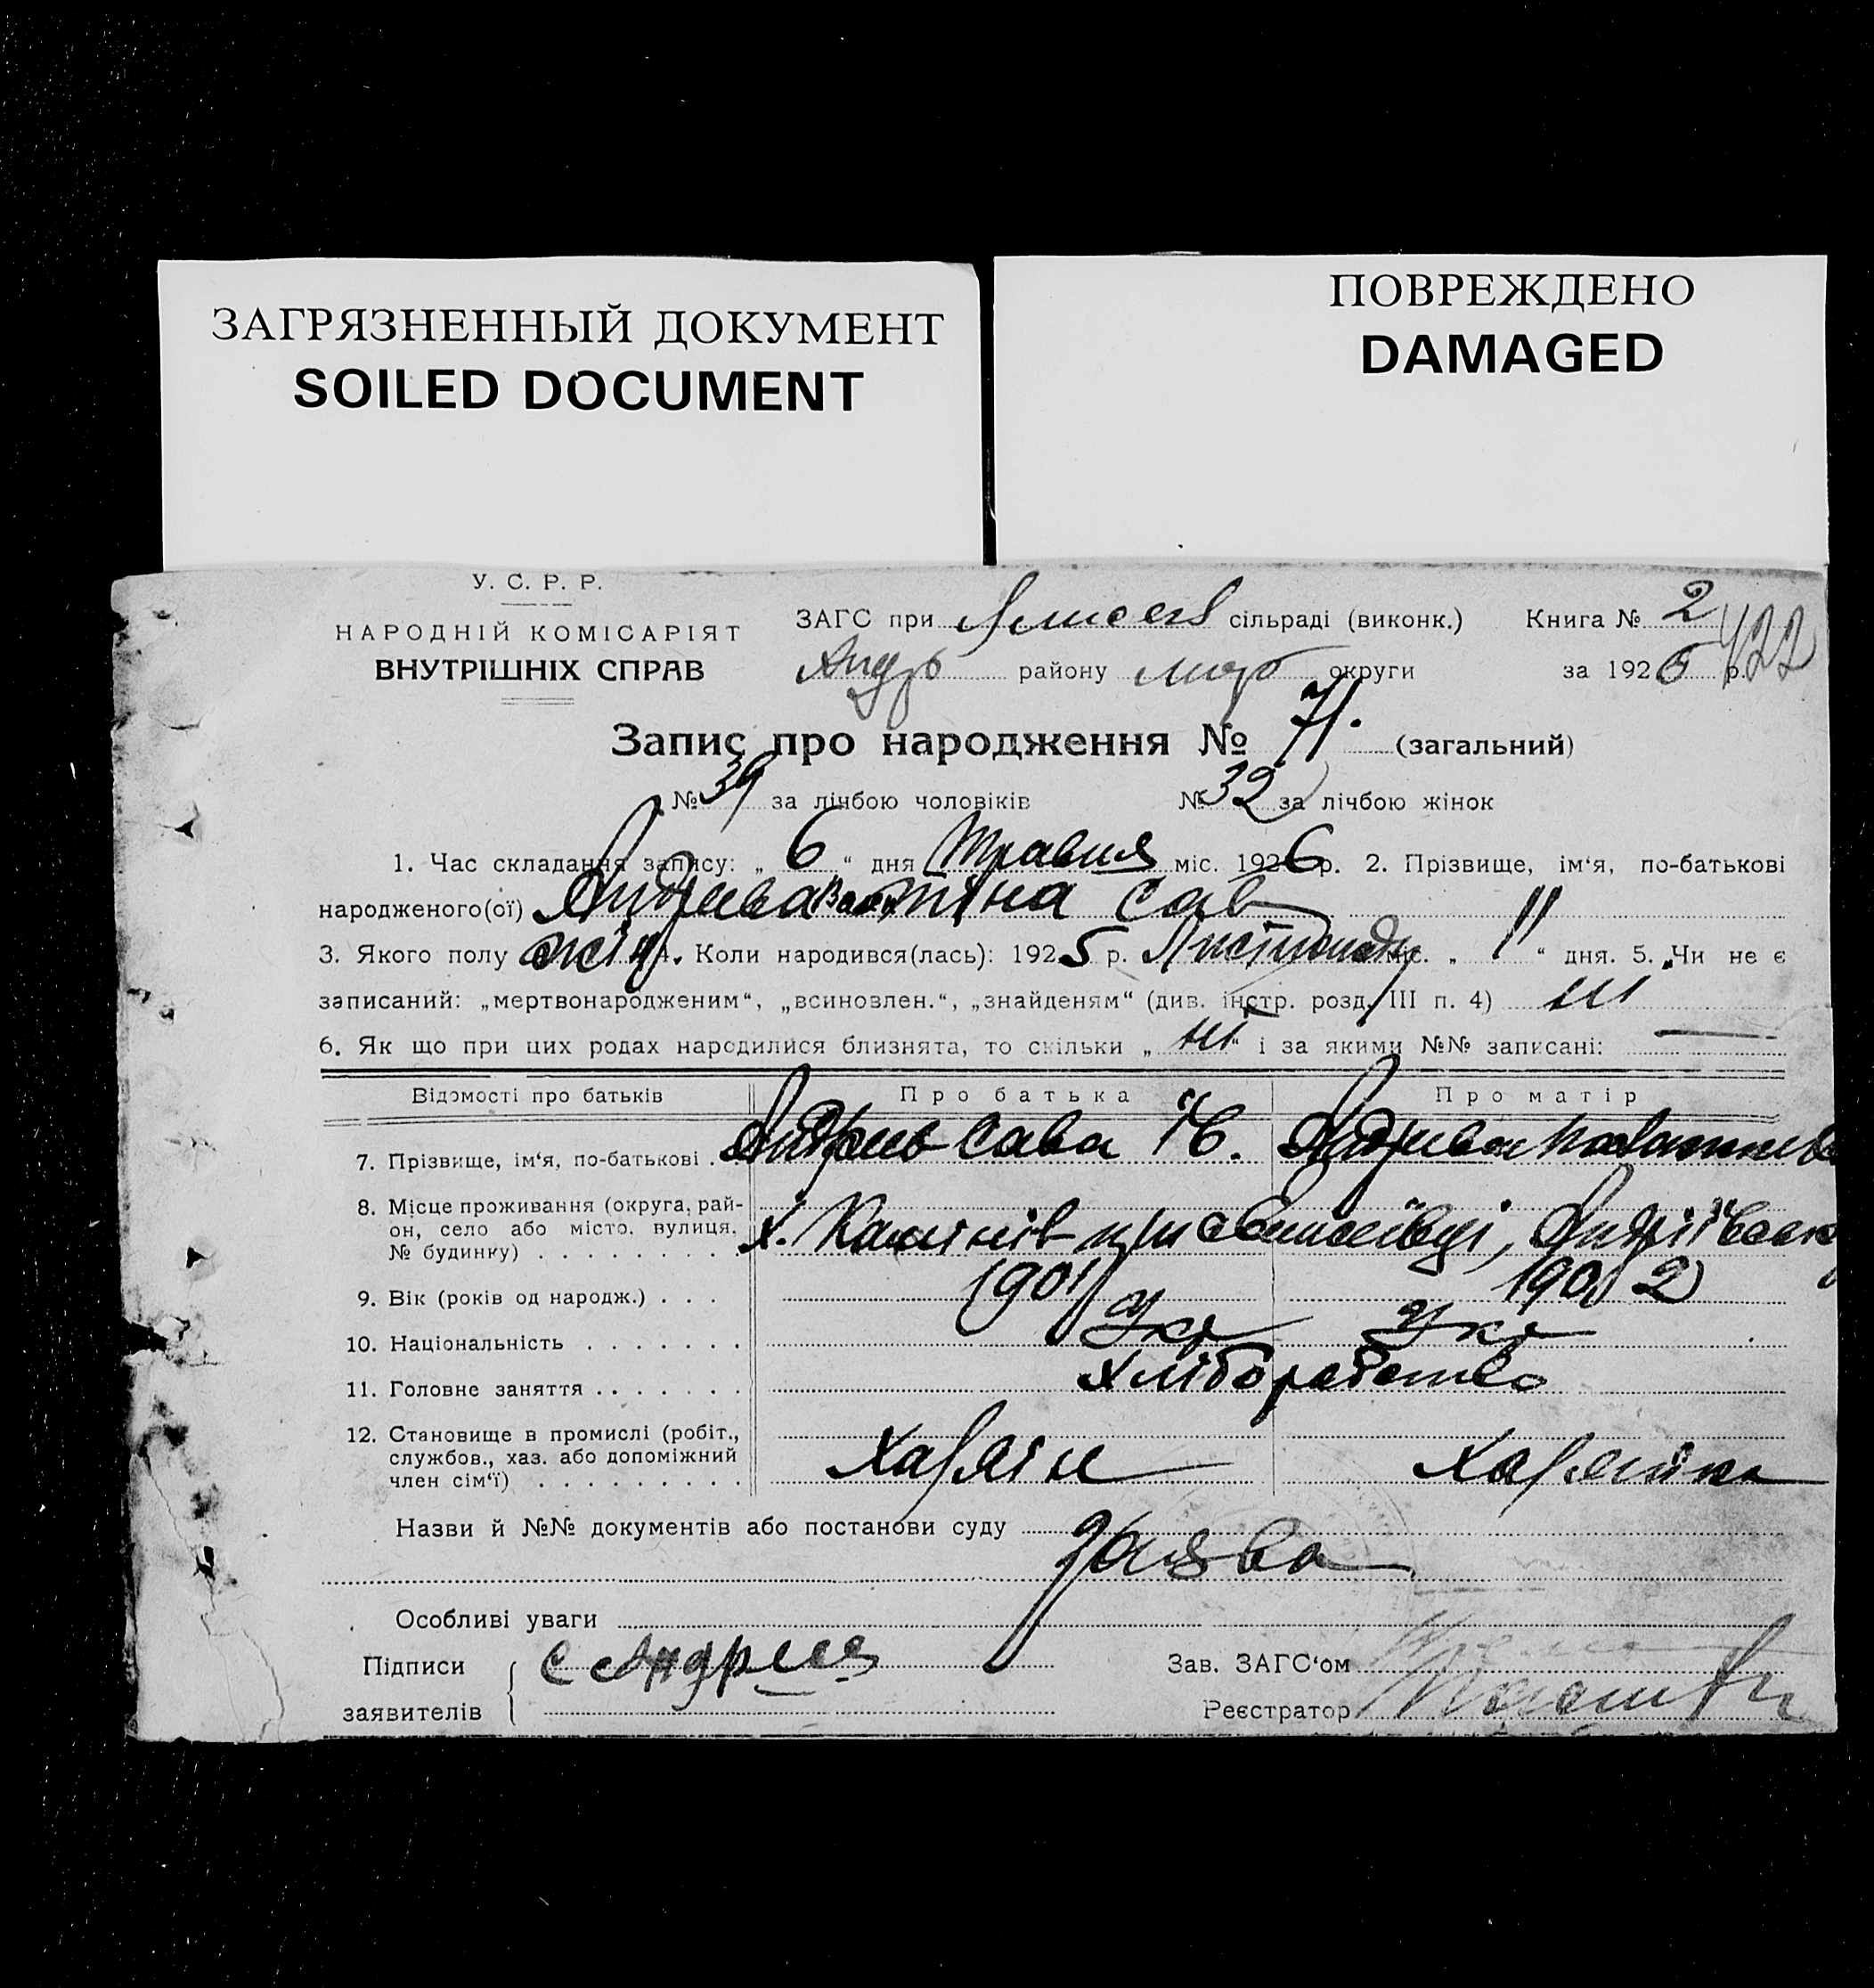 ЗАГРЯЗНЕННЫЙ ДОКУМЕНТ
SOILED DOCUMENT
ПОВРЕЖДЕНО
DAMAGED
У. С. Р. Р.
НАРОДНІЙ КОМІСАРІЯТ
ВНУТРІШНІХ СПРАВ
ЗАГС при сільраді (виконк.) Книга № 2
району округи за 192 р. 422
Запис про народження № 71. (загальний)
№ 39 за лічбою чоловіків № 32 за лічбою жінок
1. Час складання запису: „ 6 “ дня Травня міс. 1926 р. 2. Прізвище, ім‘я, по-батькові
народженого(ої) Андрієва Сав
3. Якого полу жін. 4. Коли народився(лась): 1925 р. Листопаду міс. „ 11 “ дня. 5. Чи не є
записаний: „мертвонародженим“, „всиновлен.“, „знайденям“ (див. інстр. розд. III п. 4) ні
6. Як що при цих родах народилися близнята, то скільки „ ні “ і за якими №№ записані: —
Відомості про батьків Про батька Про матір
7. Прізвище, ім‘я, по-батькові . Андрієв Сава Андрієва
8. Місце проживання (округа, рай-
он, село або місто, вулиця,
№ будинку) . . . . . . . . . х.
9. Вік (років од народж.) . . . 1901 1902
10. Національність . . . . . . . Укр Укр
11. Головне заняття . . . . . . . Хліборобство
12. Становище в промислі (робіт.,
службов., хаз. або допоміжний
член сім‘ї) . . . . . . . . . Хазяїн Хазяйка
Назви й №№ документів або постанови суду Заява
Особливі уваги
Підписи С Андрєев Зав. ЗАГС‘ом
заявителів Реєстратор